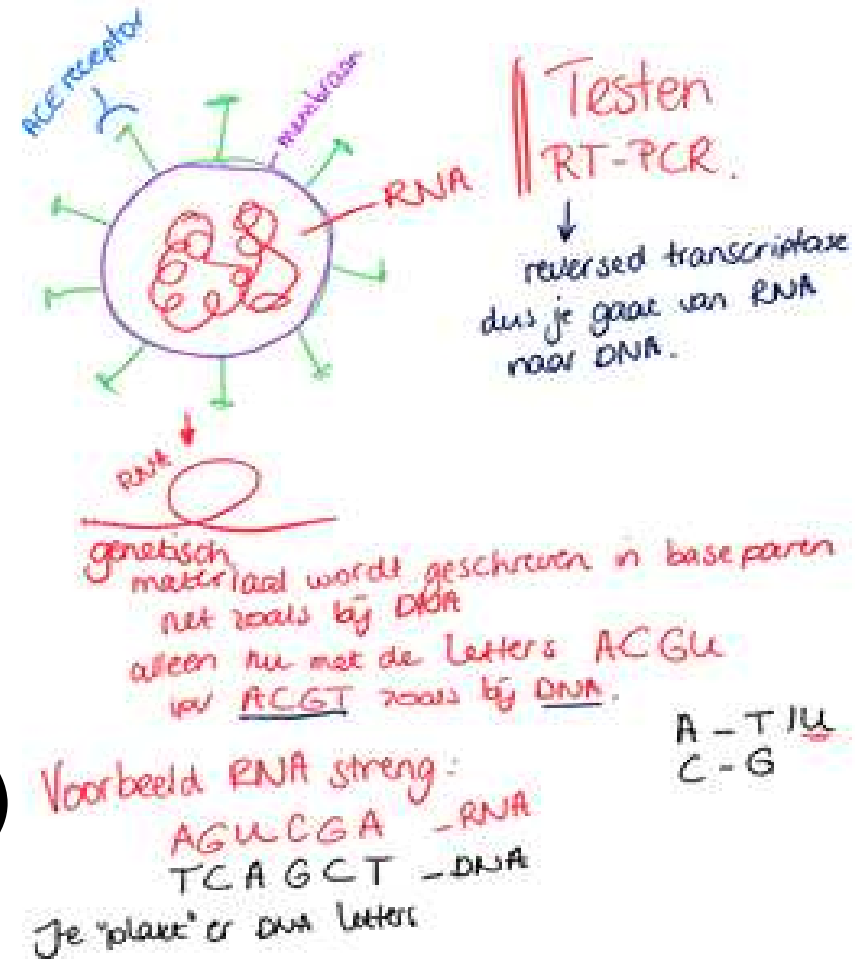 ACE receptor
membraan
RNA
Testen
RT-PCR.
reversed transcriptase
dus je gaat van RNA
naar DNA.
RNA
genetisch
materiaal wordt geschreven in baseparen
net zoals bij DNA
alleen nu met de letters ACGU
ipv ACGT zoals bij DNA.
A - T/U
C - G
Voorbeeld RNA streng:
AGUCGA - RNA
TCAGCT - DNA
Je "plakt" er DNA letters